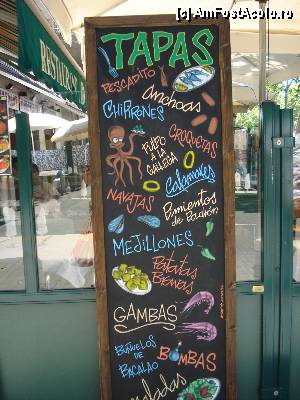 © AmFostAcolo.ro
RESTAUR
TAPAS
PESCADITO
Anchoas
CHIPIRONES
CROQUETAS
PULPO
A LA
GALLEGA
Calamares
NAVAJAS
Pimientos
de Padrón
MEJILLONES
Patatas
Bravas
GAMBAS
BUÑUELOS
DE
BACALAO
BOMBAS
Ensaladas